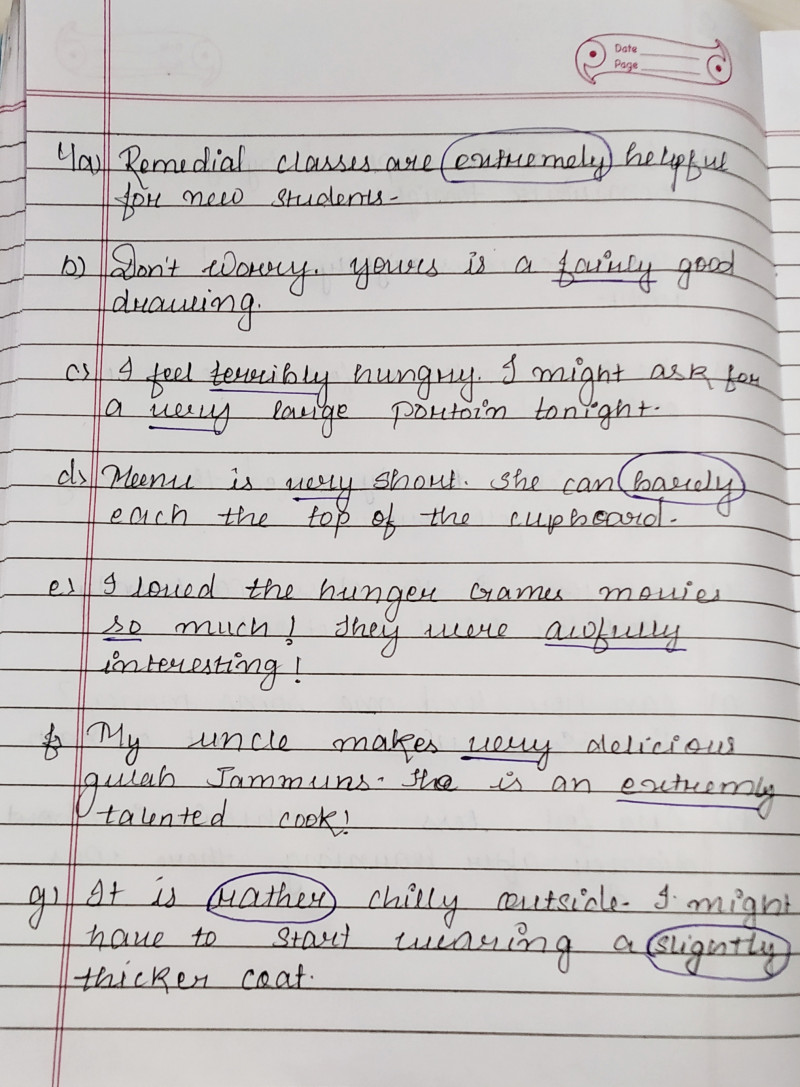 Date
Page
4a) Remedial classes are extremely helpful
for new students.
b) Don't worry. yours is a fairly good
drawing.
c) I feel terribly hungry. I might ask for
a very large portoin tonight.
d) Meenu is very short. She can barely
each the top of the cupboard.
e) I loved the hunger Games movies
so much! They were awfully
interesting!
f) My uncle makes very delicious
gulab Jammuns. He is an extremly
talented cook!
g) It is rather chilly outside. I might
have to start wearing a slightly
thicker coat.